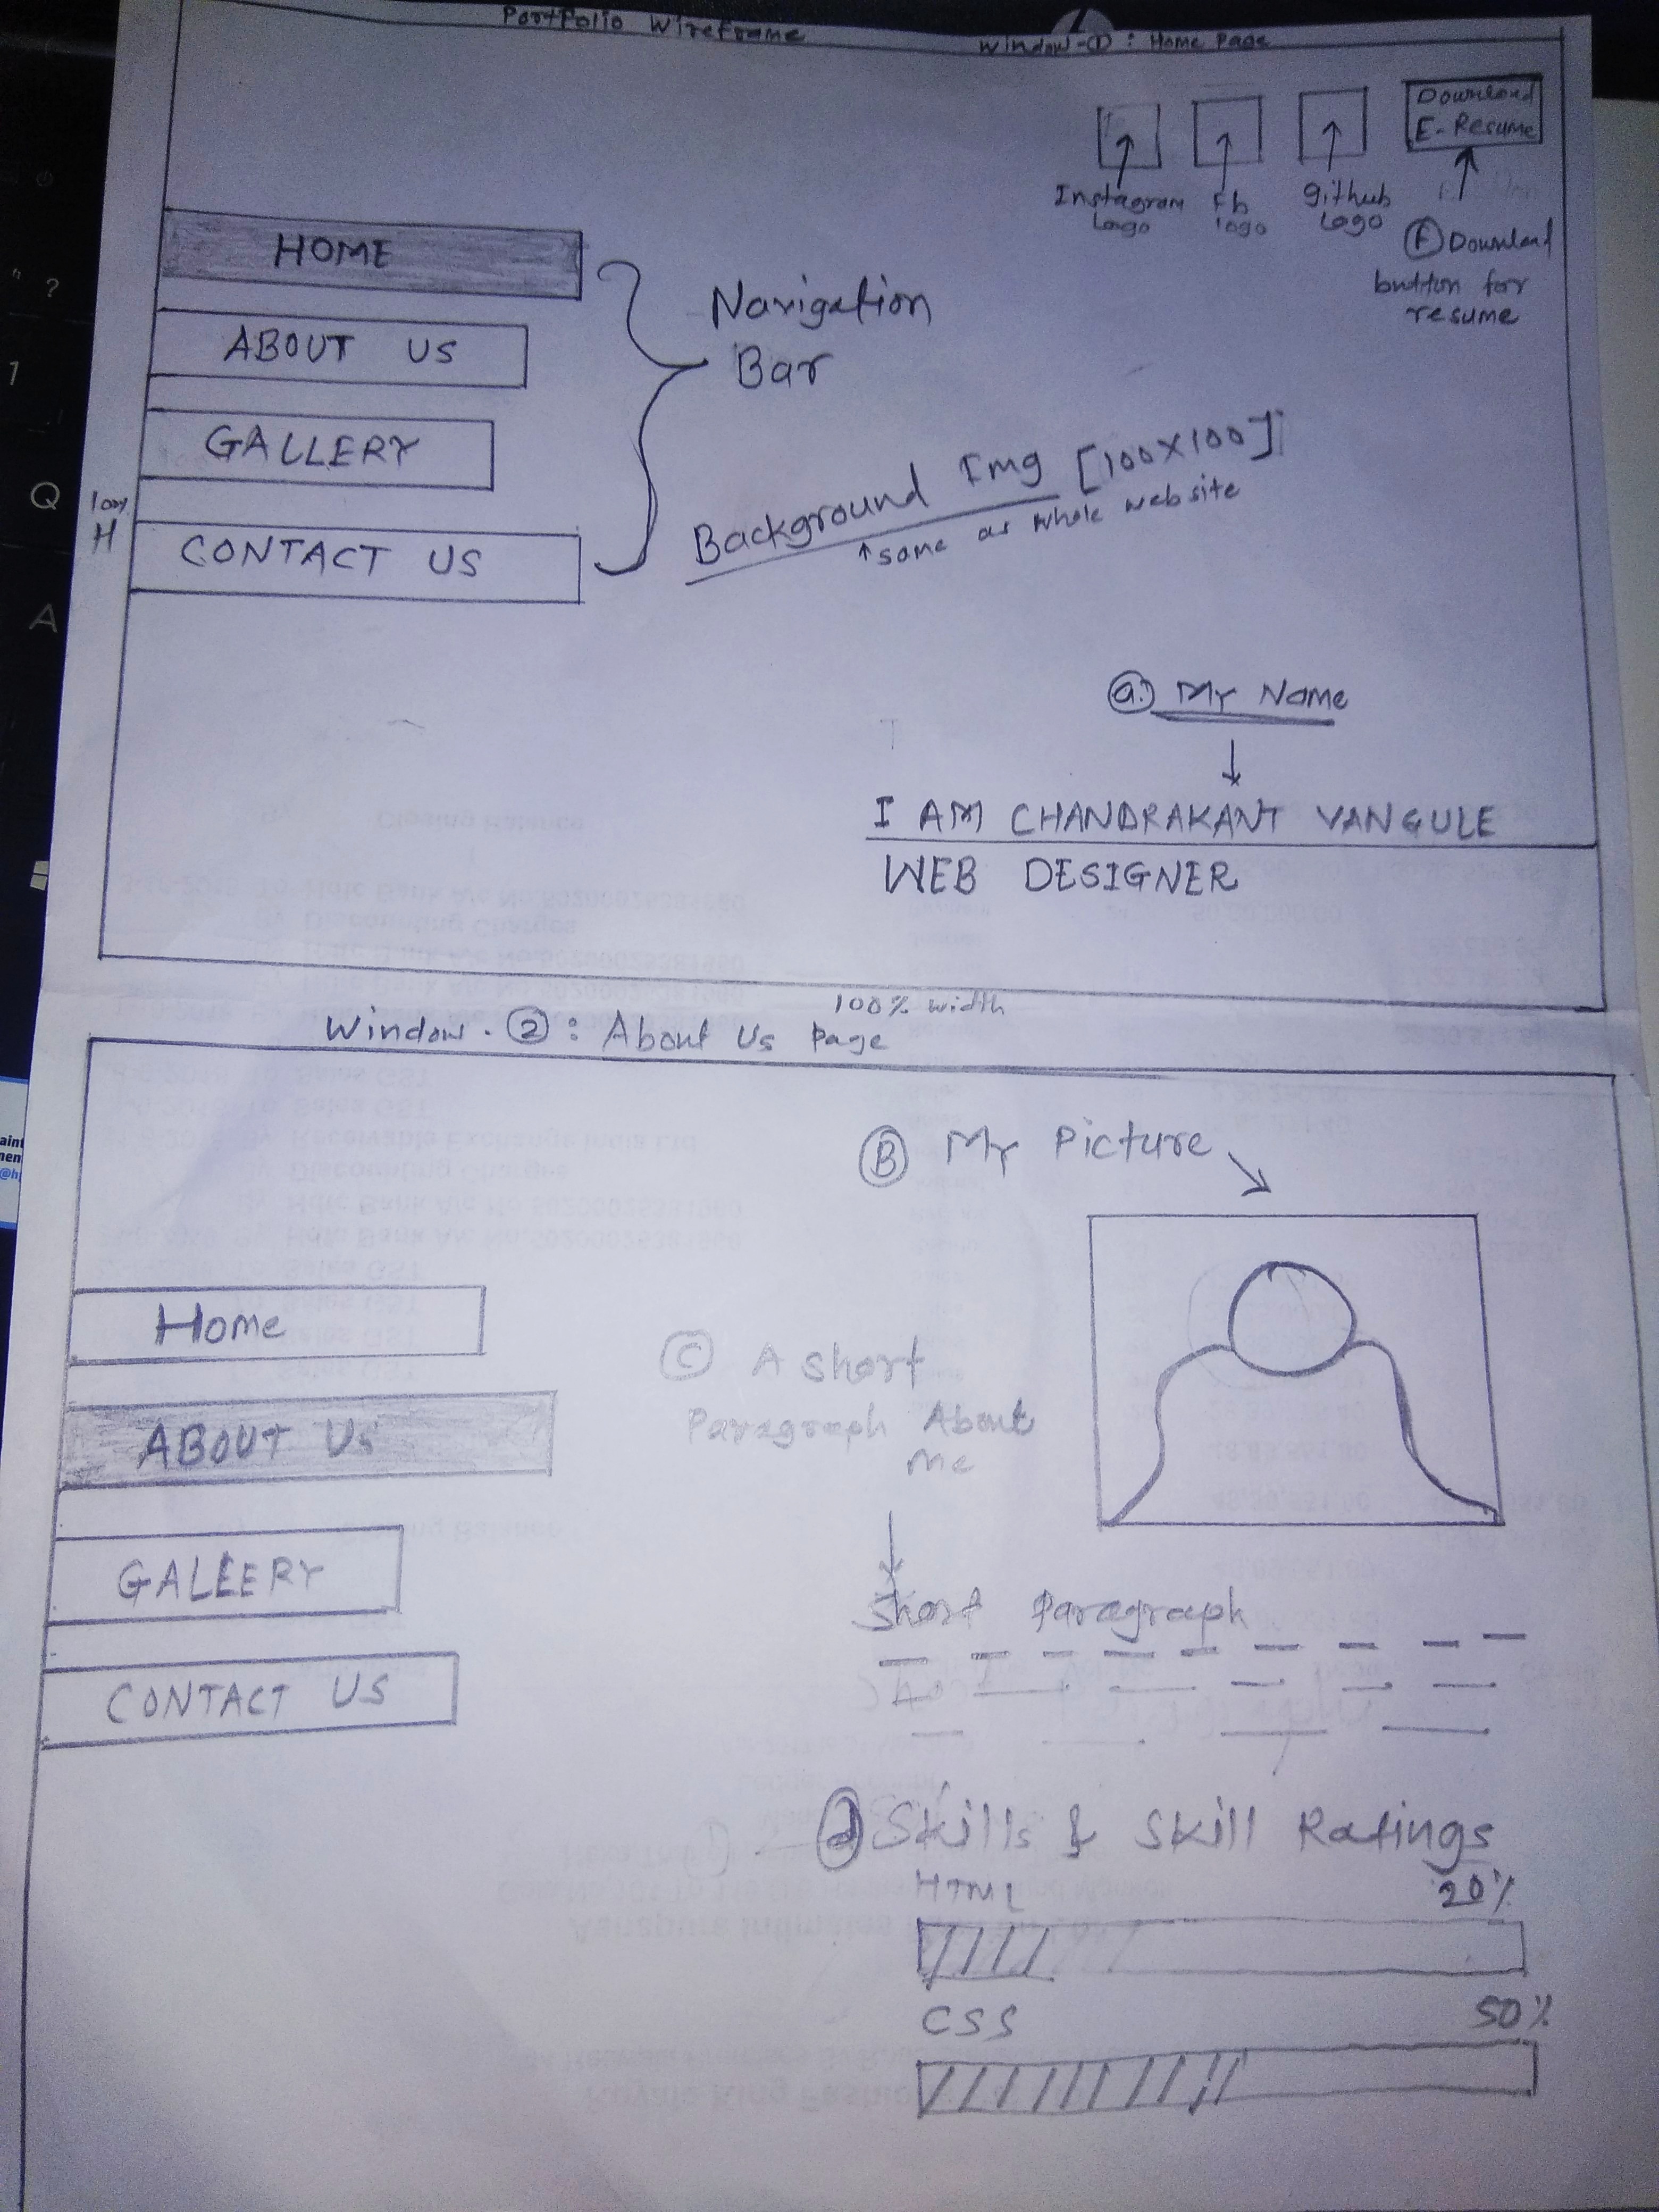 Portfolio Wireframe
Window-① : Home Page
Download
E-Resume
Instagram
Logo
Fb
logo
github
Logo
Ⓕ Download
button for
resume
HOME
ABOUT US
GALLERY
CONTACT US
Navigation
Bar
100%
H
Background Img [100X100]
↑ same as whole website
ⓐ. My Name
I AM CHANDRAKANT VANGULE
WEB DESIGNER
100% width
Window - ② : About Us Page
Ⓑ My Picture
Home
ABOUT US
GALLERY
CONTACT US
Ⓒ A short
Paragraph About
Me
Short Paragraph
ⓓ Skills & Skill Ratings
HTML 20%
CSS 50%